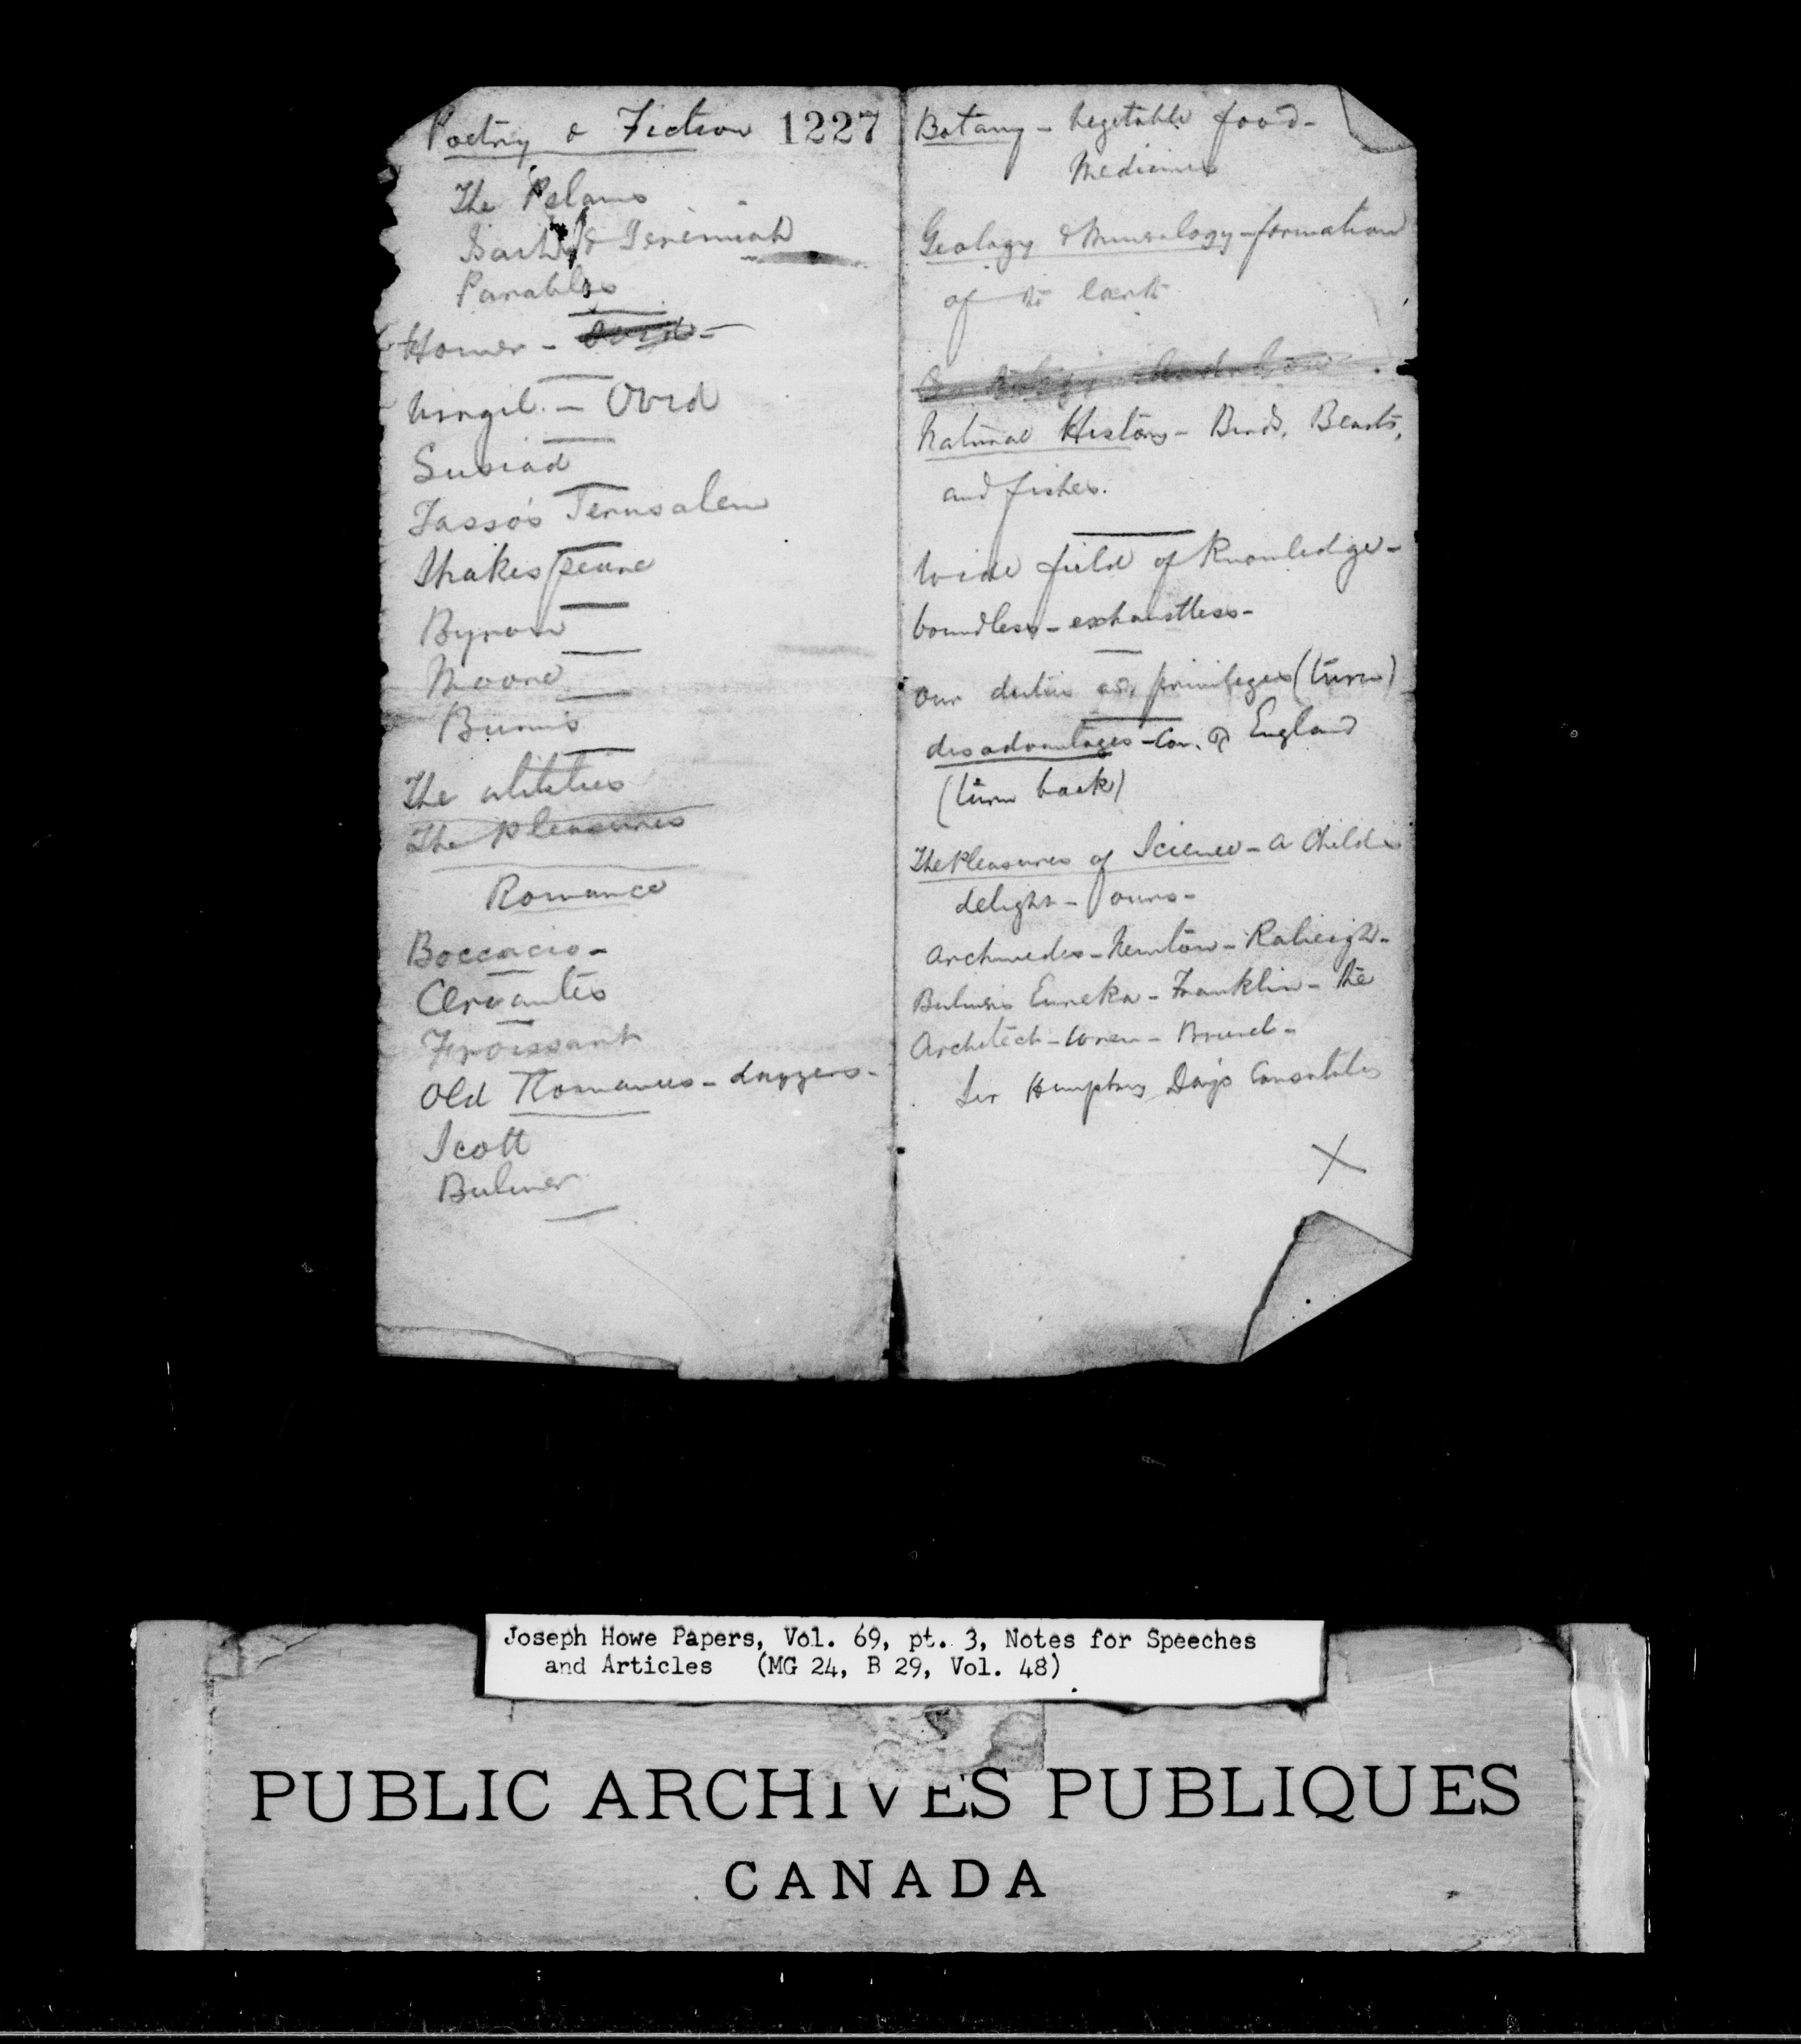 Poetry & Fiction 1227
The Pslams
Isaih & Jeremiah
Parables
Homer - Ovid -
Virgil - Ovid
Lusiad
Tasso's Jerusalem
Shakespeare
Byron
Moore
Burns
The utilities
The Pleasures
Romance
Boccacio -
Cervantes
Froissart
Old Romances - daggers -
Scott
Bulwer
Botany - Vegetable food -
Medicines
Geology & Mineralogy - formation
of the Earth
Natural History - Birds, Beasts,
and fishes.
Wide field of Knowledge -
boundless - exhaustless -
our duties and privileges (turn)
disadvantages - Com. of England
(turn back)
The Pleasures of Science - a Child's
delight - ours -
Archimedes - Newton - Raleigh -
Bulwer's Eureka - Franklin - the
Architect - Wren - Brunel -
Sir Humphrey Davy's
X
Joseph Howe Papers, Vol. 69, pt. 3, Notes for Speeches
and Articles (MG 24, B 29, Vol. 48)
PUBLIC ARCHIVES PUBLIQUES
CANADA